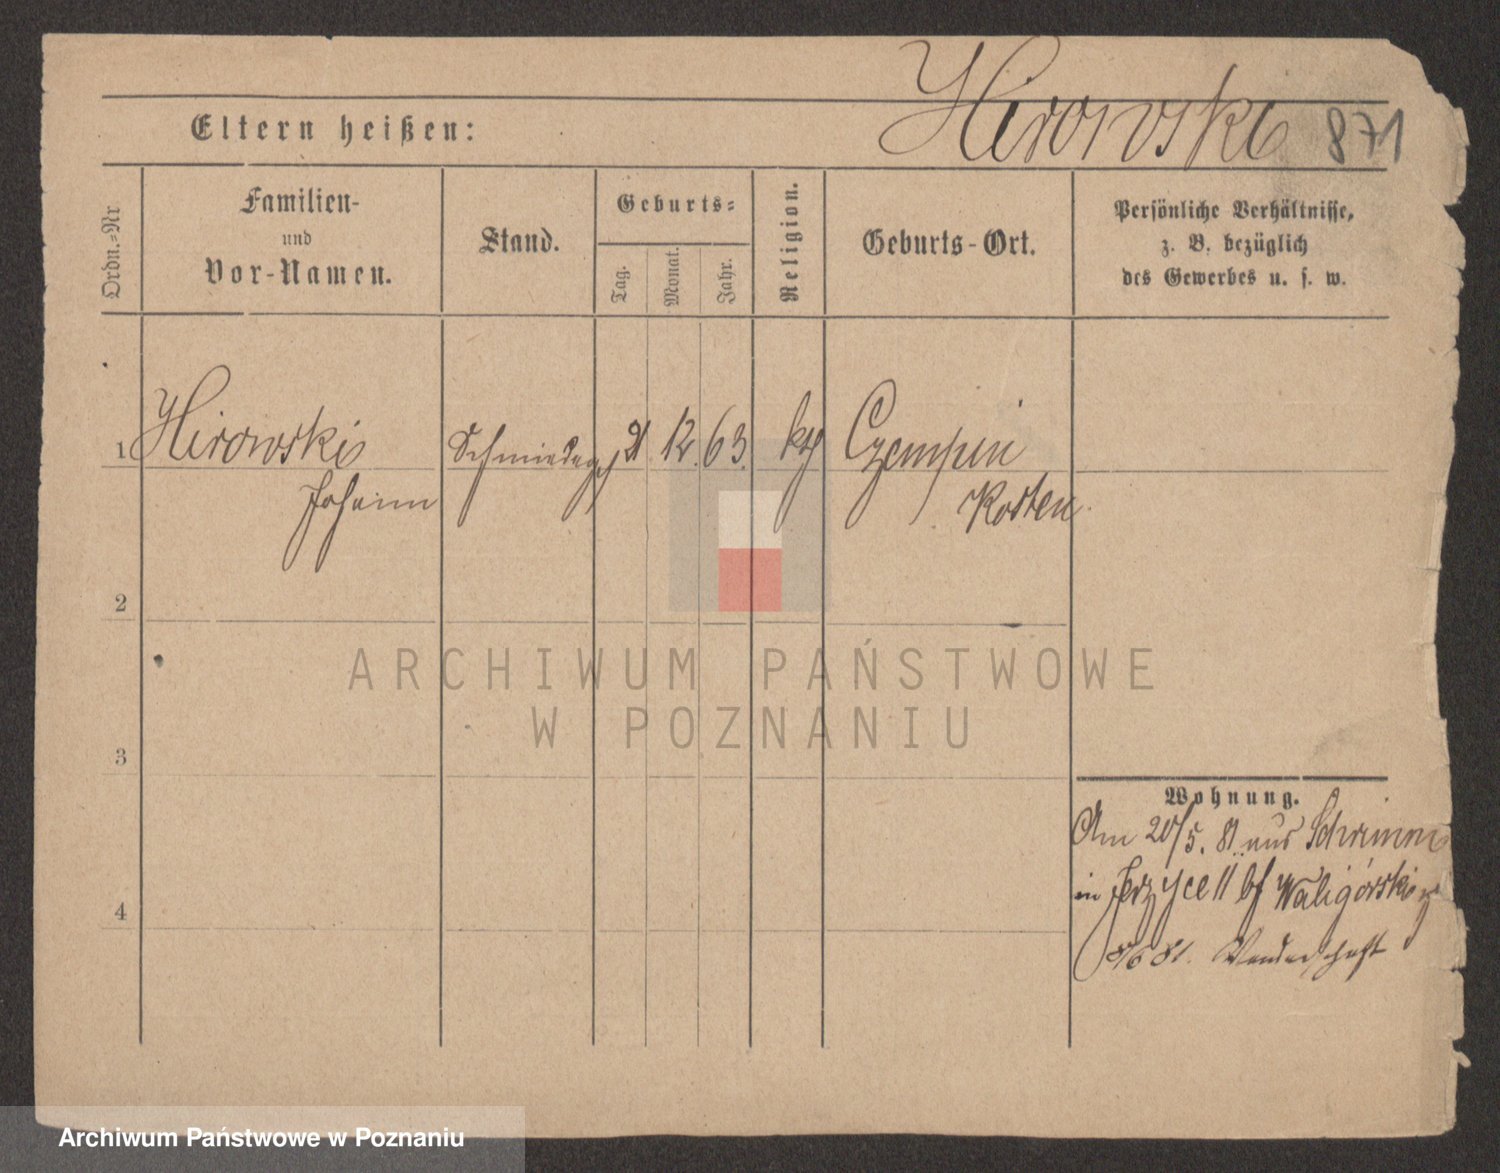 Hirowski 871
Eltern heißen:
Ordn.=Nr
Familien-
und
Vor-Namen.
Stand.
Geburts=
Tag.
Monat.
Jahr.
Religion.
Geburts-Ort.
Persönliche Verhältnisse,
z. B. bezüglich
des Gewerbes u. s. w.
1 Hirowski Schmiedeges 21 12. 63. kth Czempin
Johann Kosten
2
3
4
Wohnung.
Am 20/5. 81 aus Schrimm
in Jerzyce 11 bf Waligórski
8/6 81. Wanderschaft
ARCHIWUM PAŃSTWOWE
W POZNANIU
Archiwum Państwowe w Poznaniu